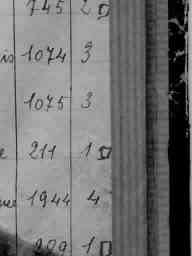 745 2
is 1074 3
1075 3
e 211 1
ue 1944 4
209 1